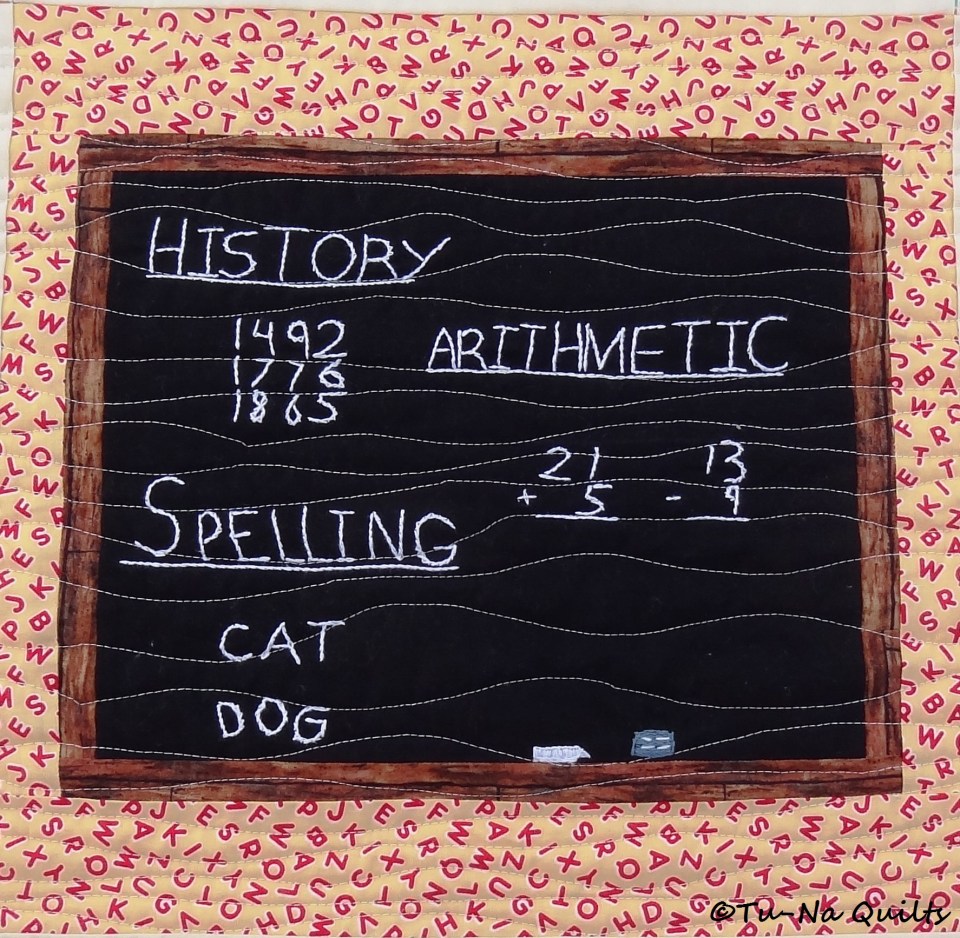 HISTORY
1492
1776
1865
ARITHMETIC
21
+ 5
13
- 9
SPELLING
CAT
DOG
©Tu-Na Quilts